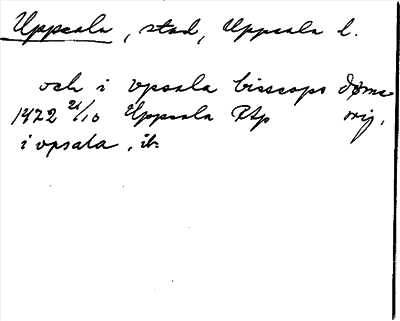 Uppsala, stad, Uppsala l.
och i vpsala biscops døme
1472 21/10 Uppsala Rtp orig.
i vpsala, ib.